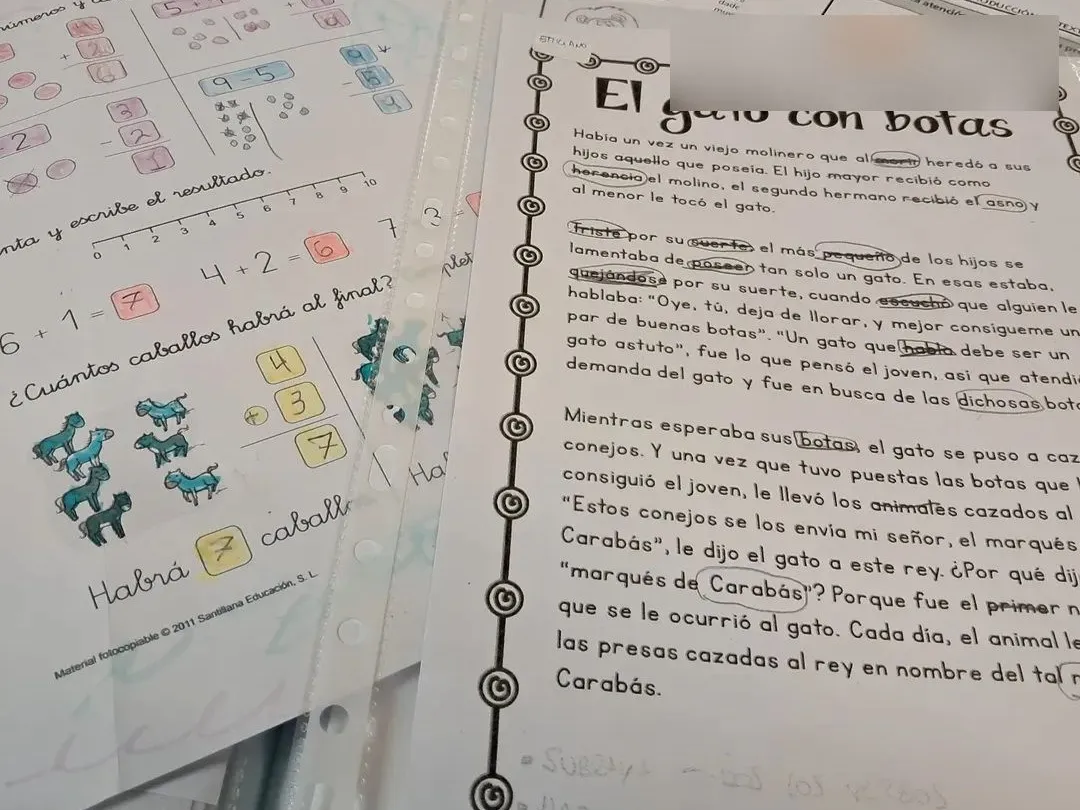 números y
4
+ 2
6
5 +
4
9 - 5
9
- 5
4
- 2
3
- 2
1
nta y escribe el resultado.
0 1 2 3 4 5 6 7 8 9 10
6 + 1 = 7
4 + 2 = 6
7
3
=
plet
¿Cuántos caballos habrá al final?
4
+ 3
7
Habrá 7 caball
Ha
Material fotocopiable © 2011 Santillana Educación, S. L.
El gato con botas
Había un vez un viejo molinero que al morir heredó a sus
hijos aquello que poseía. El hijo mayor recibió como
herencia el molino, el segundo hermano recibió el asno y
al menor le tocó el gato.
Triste por su suerte, el más pequeño de los hijos se
lamentaba de poseer tan solo un gato. En esas estaba,
quejándose por su suerte, cuando escuchó que alguien le
hablaba: "Oye, tú, deja de llorar, y mejor consígueme un
par de buenas botas". "Un gato que habla debe ser un
gato astuto", fue lo que pensó el joven, así que atendi
demanda del gato y fue en busca de las dichosas bot
Mientras esperaba sus botas, el gato se puso a caz
conejos. Y una vez que tuvo puestas las botas que
consiguió el joven, le llevó los animales cazados al
"Estos conejos se los envía mi señor, el marqués
Carabás", le dijo el gato a este rey. ¿Por qué dij
"marqués de Carabás"? Porque fue el primer n
que se le ocurrió al gato. Cada día, el animal le
las presas cazadas al rey en nombre del tal
Carabás.